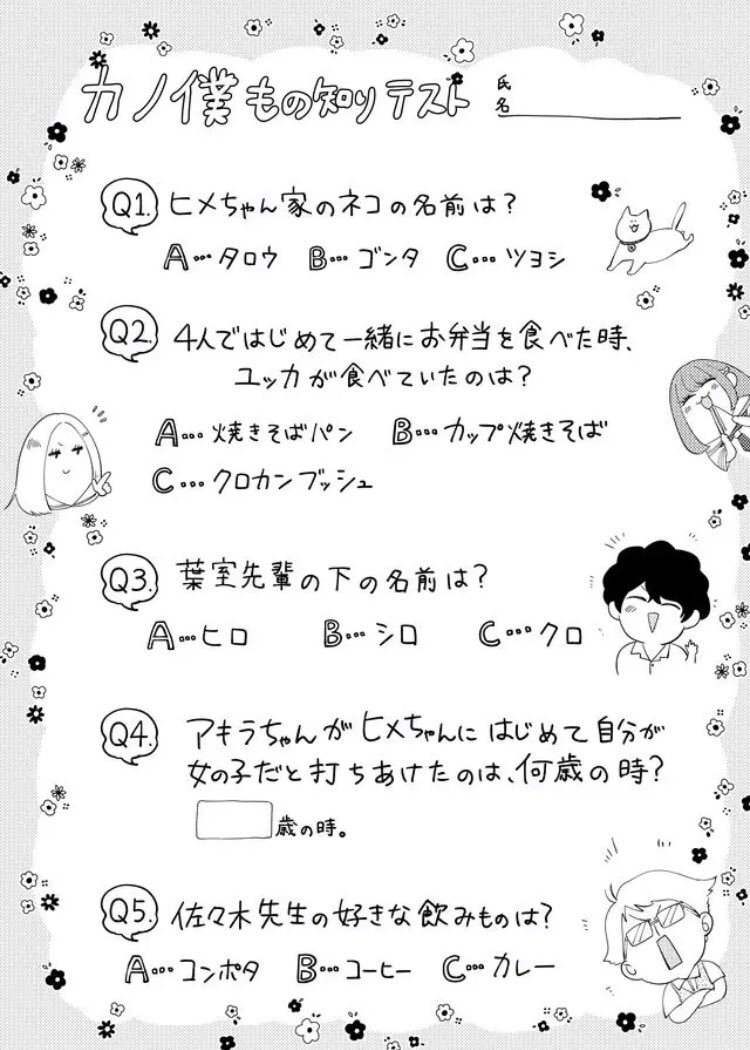 カノ僕もの知りテスト
氏名
Q1. ヒメちゃん家のネコの名前は?
A…タロウ B…ゴンタ C…ツヨシ
Q2. 4人ではじめて一緒にお弁当を食べた時、
ユッカが食べていたのは?
A…焼きそばパン B…カップ焼きそば
C…クロカンブッシュ
Q3. 葉室先輩の下の名前は?
A…ヒロ B…シロ C…クロ
Q4. アキラちゃんがヒメちゃんにはじめて自分が
女の子だと打ちあけたのは、何歳の時?
歳の時。
Q5. 佐々木先生の好きな飲みものは?
A…コンポタ B…コーヒー C…カレー